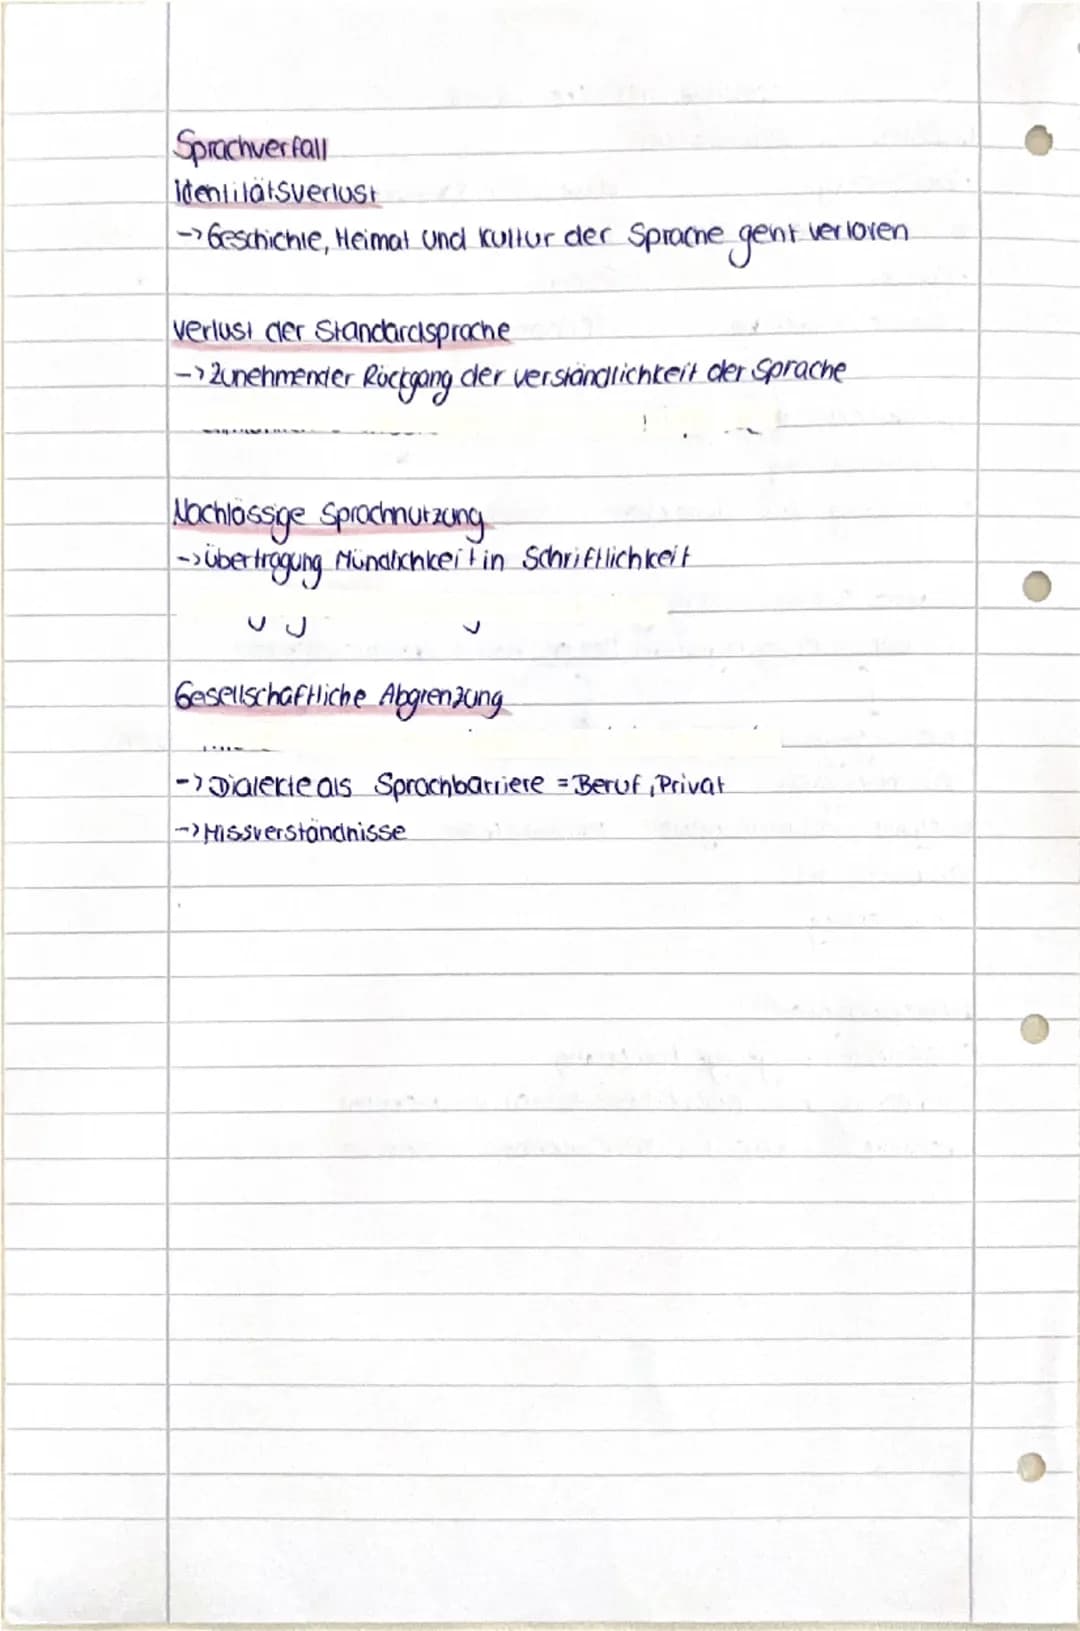 Sprachverfall
identitätsverlust
-> Geschichte, Heimat und Kultur der Sprache geht verloren
verlust der Standardsprache
-> Zunehmender Rückgang der verständlichkeit der Sprache
Nachlässige Sprachnutzung
-> übertragung Mündlichkeit in Schriftlichkeit
Gesellschaftliche Abgrenzung
-> Dialekte als Sprachbarriere = Beruf, Privat
-> Missverständnisse